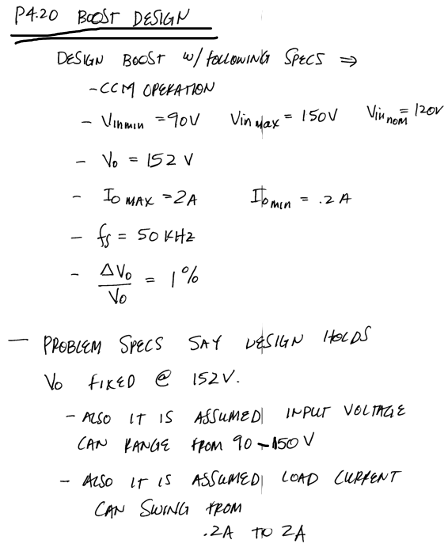 P4.20 BOOST DESIGN
DESIGN BOOST W/ FOLLOWING SPECS ⇒
- CCM OPERATION
- Vinmin = 90V Vinmax = 150V Vinnom = 120V
- Vo = 152 V
- Io MAX = 2A Io MIN = .2 A
- fs = 50 KHz
- ΔVo/Vo = 1%
- PROBLEM SPECS SAY DESIGN HOLDS
Vo FIXED @ 152V.
- ALSO IT IS ASSUMED INPUT VOLTAGE
CAN RANGE FROM 90-150 V
- ALSO IT IS ASSUMED LOAD CURRENT
CAN SWING FROM
.2A TO 2A